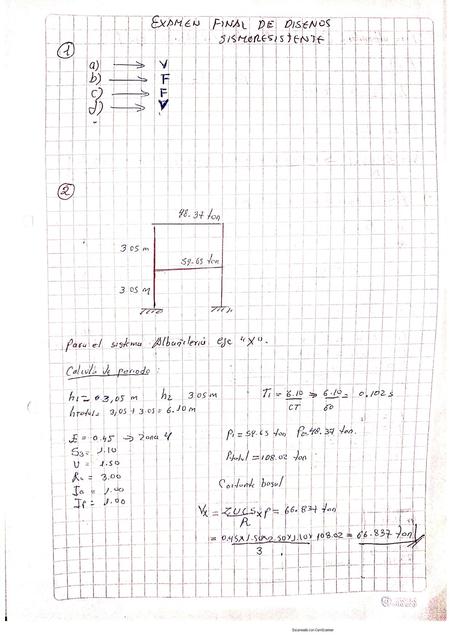 EXAMEN FINAL DE DISENOS
SISMORESISTENTE
1
a) → V
b) → F
c) → F
d) → V
2
48.37 ton
3.05 m
59.65 ton
3.05 m
Para el sistema Albañileria eje "X".
Calculo de periodo:
h1 = 3,05 m h2 3.05 m
hTotal = 3,05 + 3.05 = 6.10 m
T1 = 6.10/CT → 6.10/60 = 0.102 s
Z = 0.45 → Zona 4
S3 = 1.10
U = 1.50
R0 = 3.00
Ia = 1.00
Ip = 1.00
P1 = 59.65 ton P2 = 48.37 ton.
Ptotal = 108.02 ton
Cortante basal
Vx = ZUCS/R x P = 66.837 ton
= 0.45x1.50x2.50x1.10/3 x 108.02 = 66.837 ton
Escaneado con CamScanner